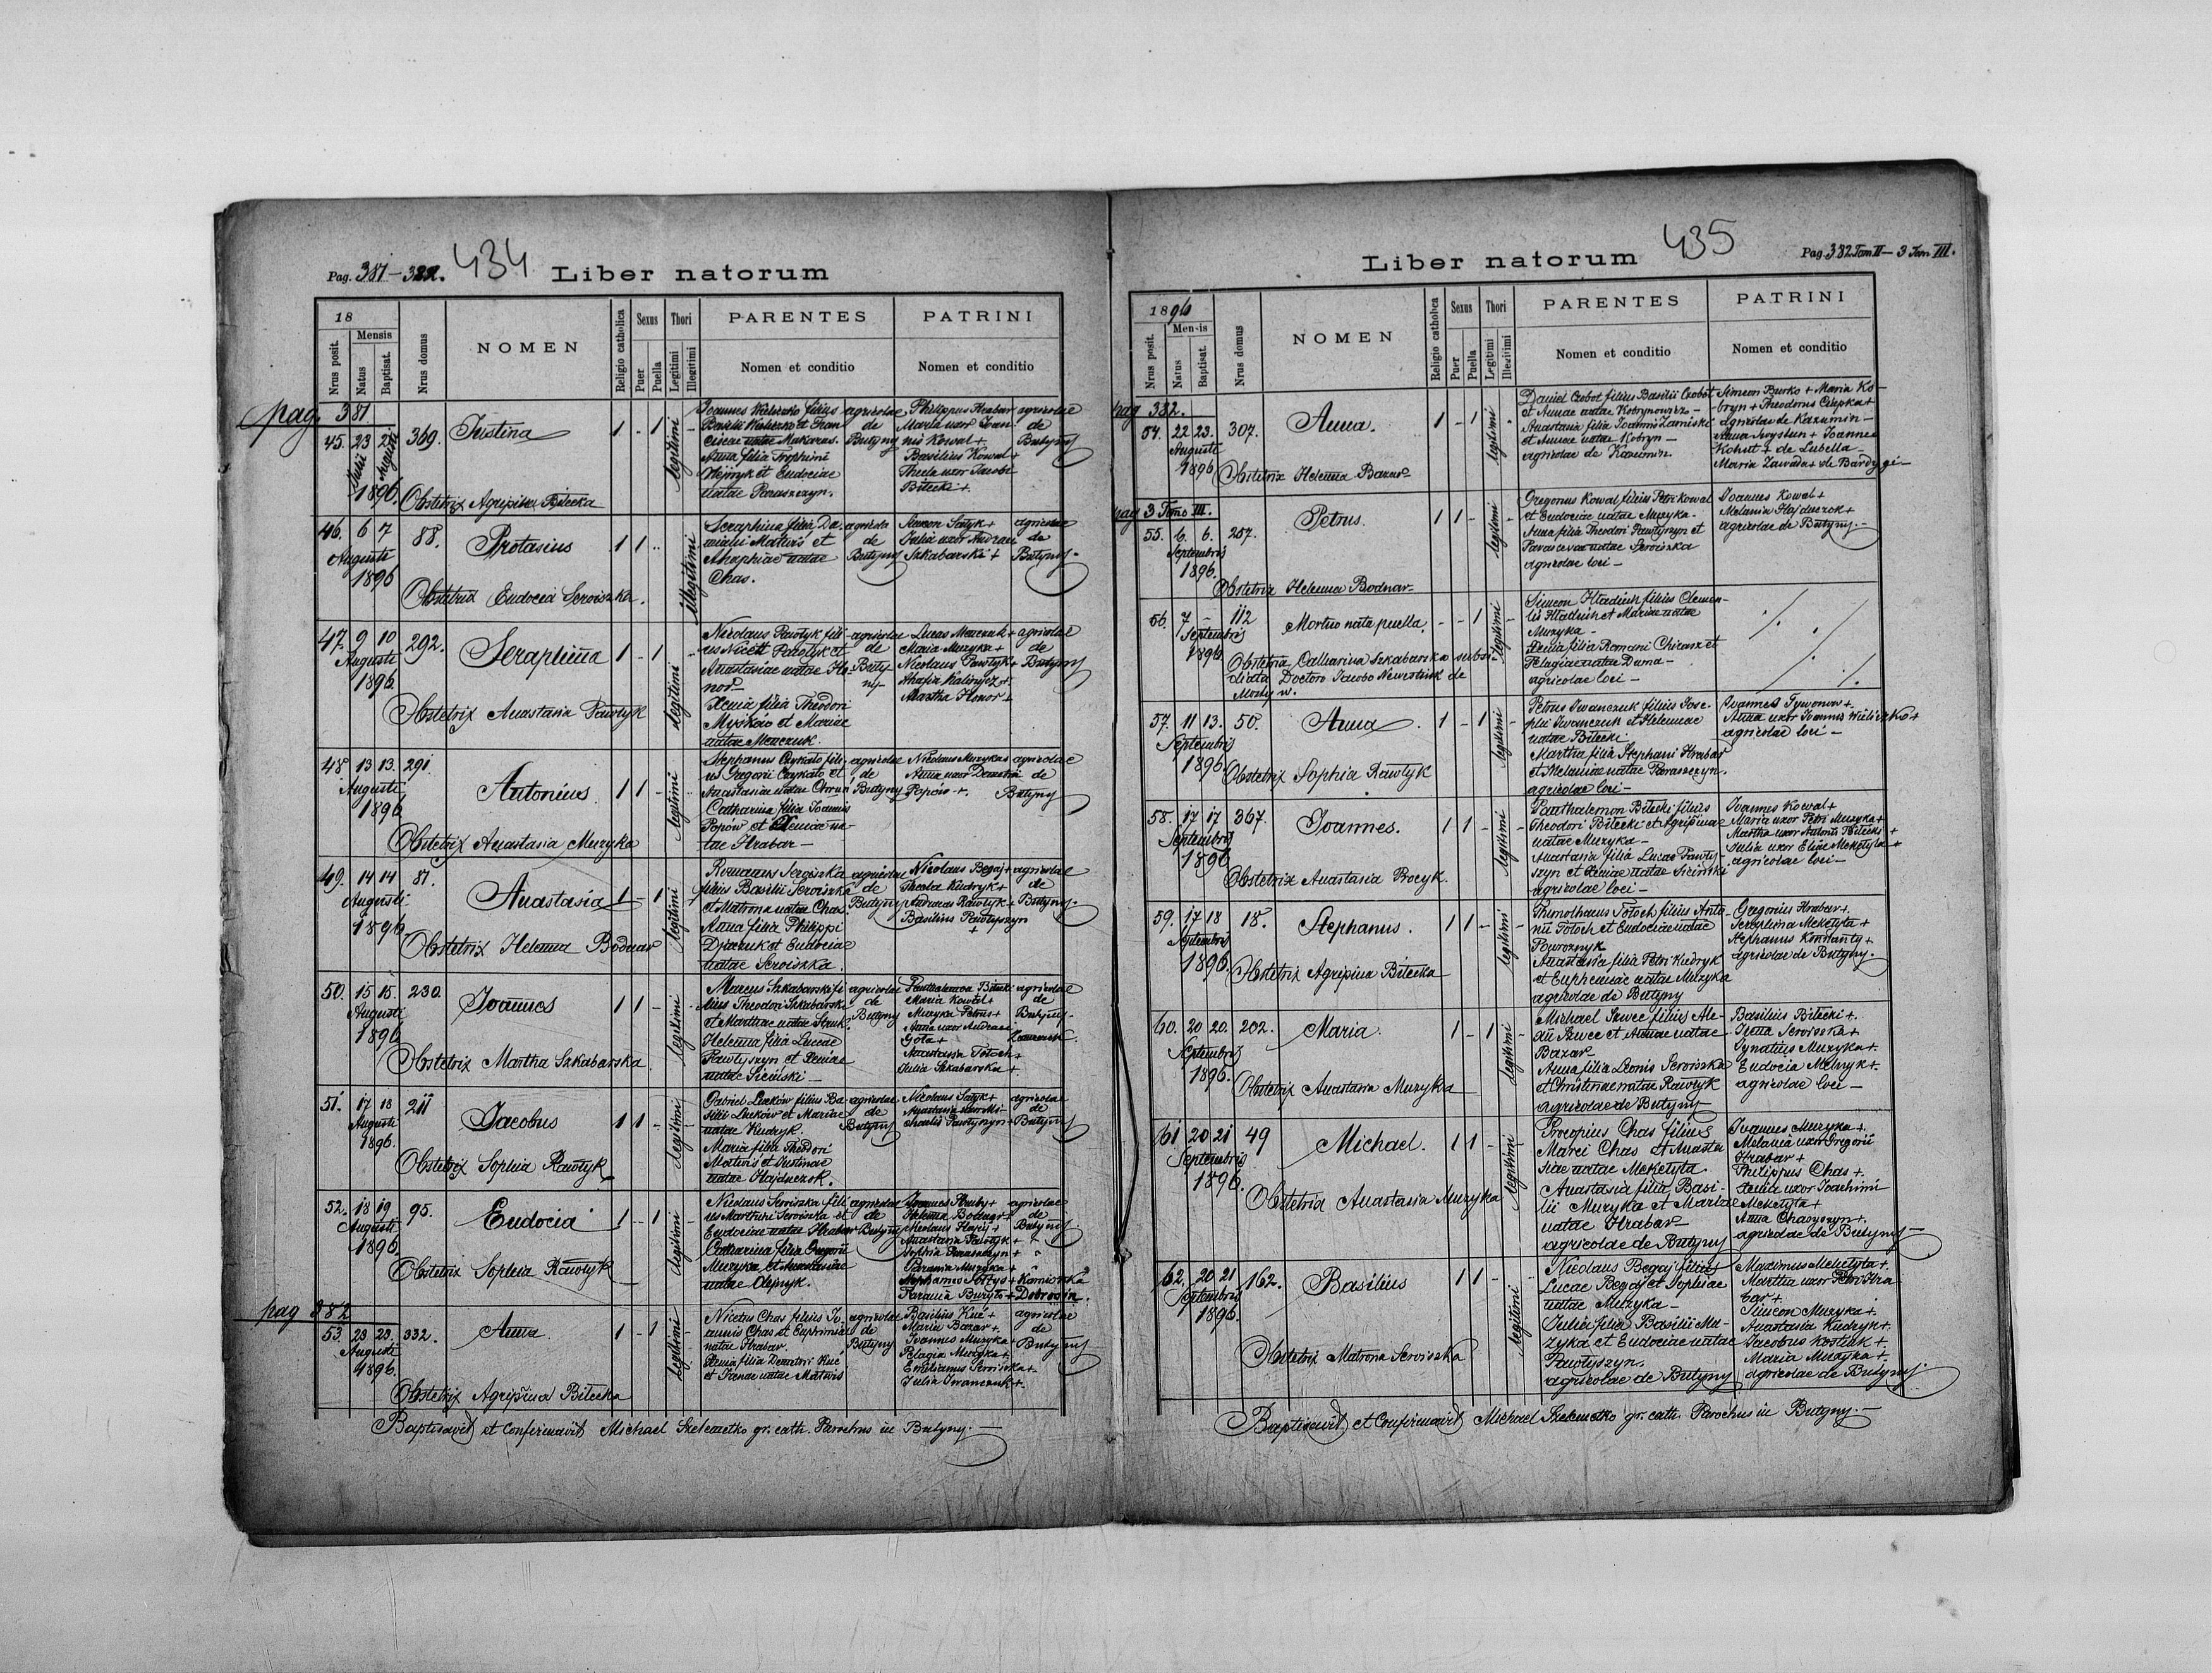 Pag. 381-382. 434 Liber natorum
18
Nrus posit.
Mensis
Natus
Baptisat.
Nrus domus
NOMEN
Religio catholica
Sexus
Puer
Puella
Thori
Legitimi
Illegitimi
PARENTES
Nomen et conditio
PATRINI
Nomen et conditio
pag. 381
45. 23 Julii Augusti 1896. 369. Justina 1 - 1 legitimi -
Joannes Wieliczko filius
Basilii Wieliczko et Fran
ciscae natae Makaras.
Anna filia Trophimi
Olejnyk et Eudociae
natae Paraszczyn.
agricolae
de
Butyny
Philippus Hrabar
Maria uxor Joan
nis Kowal +
Basilius Kowal +
Thecla uxor Jacobi
Biłecki +
agricolae
de
Butyny
Obstetrix Agripina Biłecka
46. 6 7 Augusti 1896 88. Protasius 1 1 - illegitimi
Seraphina filia Da-
nielis Matwis et
Ahaphiae natae
Chas.
agricola
de
Butyny
Simeon Satyk +
Julia uxor Andreae
Szkabarski +
agricolae
de
Butyny.
Obstetrix Eudocia Seroiszka.
47. 9 10 Augusti 1896 292. Seraphina 1 - 1 legitimi
Nicolaus Pawłyk fili-
us Nicetae Pawłyk et
Anastasiae natae Ho-
nor -
Xenia filia Theodori
Myśków et Mariae
natae Menczuk.
agricolae
de
Buty
ny
Lucas Menczuk +
Maria Muzyka +
Nicolaus Pawłyk +
Martha Honor +
agricolae
de
Butyny
Obstetrix Anastasia Pawłyk
48. 13 13. Augusti 1896 291. Antonius 1 1 - legitimi
Stephanus Czykało fili-
us Gregorii Czykało et
Catharina filia Joannis
Popów et Xeniae na-
tae Hrabar -
agricolae
de
Butyny
Nicolaus Muzyka
Anna uxor Demetrii
Popów +.
agricolae
de
Butyny
Obstetrix Anastasia Muzyka
49. 14 14 Augusti 1896 81. Anastasia 1 - 1 legitimi
Romanus Seroiszka
filius Basilii Seroiszka
et Matrona natae Chas.
Anna filia Philippi
Djaczuk et Eudociae
natae Seroiszka.
agricolae
de
Butyny
Nicolaus Begaj +
Thecla Kudryk +
Andreas Pawłyk +
Basilius Pawłyszyn
+
agricolae
de
Butyny.
Obstetrix Helenna Bodnar
50. 15 15. Augusti 1896 230. Joannes 1 1 - legitimi
Marcus Szkabarski fi
lius Theodori Szkabarski
et Marthae natae
Helenna filia Lucae
Pawłyszyn et Xeniae
natae Siciński -
agricolae
de
Butyny
Panthelemon Biłecki
Maria Kowal +
Muzyka Petrus +
Anna uxor Andreae
Gola +
Anastasia Totoch +
Julia Szkabarska +.
agricolae
de
Butyny.
Obstetrix Martha Szkabarska
51. 17 18 Augusti 1896. 211 Jacobus 1 1 - legitimi
Gabriel Luków filius Ba
silii Luków et Mariae
natae Kudryk.
Maria filia Theodori
Matwis et Justinae
natae Hajduczok.
agricolae
de
Butyny
Nicolaus Satyk +
Anastasia uxor Mi-
chaelis Pawłyszyn +
agricolae
de
Butyny
Obstetrix Sophia Pawłyk
52. 18 19 Augusti 1896. 95. Eudocia 1 - 1 legitimi
Nicolaus Seroiszka fili
us Seroiszka et
Eudociae natae Hrabar
Catharina filia Gregorii
Muzyka et Anastasiae
natae Olejnyk.
agricolae
de
Butyny
Helenna Bodnar +
Anastasia Pawłyk +
Sophia Paraszczyn +
Parania Muzyka +
Stephanus Sołtys + Kamionka
Parania Buryło + Dobrosin.
agricolae
de
Butyny
Obstetrix Sophia Pawłyk
pag 382
53. 23 23. Augusti 1896. 332. Anna 1 - 1 legitimi
Nicetas Chas filius Jo-
annis Chas et Euphrimiae
natae Hrabar.
Xenia filia Demetrii Kuć
et Irenae natae Matwis
agricolae
de
Butyny
Basilius Kuć +
Maria Bazar +.
Joannes Muzyka +
Pelagia Muzyka +.
Emelianus Seroiszka +
Julia Iwanczuk +.
agricolae
de
Butyny
Obstetrix Agripina Biłecka
Baptisavit et Confirmavit Michael Szeleszczko gr. cath. Parochus in Butyny. -
Liber natorum 435 Pag. 382 Tom II - 3 Tom III.
1896
Nrus posit.
Mensis
Natus
Baptisat.
Nrus domus
NOMEN
Religio catholica
Sexus
Puer
Puella
Thori
Legitimi
Illegitimi
PARENTES
Nomen et conditio
PATRINI
Nomen et conditio
pag 382.
54. 22 23. Augusti 1896 307. Anna. 1 - 1 legitimi -
Daniel Czobot filius Basilii Czobot
et Annae natae Kobrynowicz -
Anastasia filia Joannis Zamiski
et Annae natae Kobryn -
agricolae de Kazumin.
Simeon Burko + Maria Ko-
bryn + Theodorus Czepka +
agricolae de Kazumin -
Joannes
Kohut + de Lubella -
Maria Zawada + de Bardygi -
Obstetrix Helenna Bazar
pag 3 Tomo III.
55. 6. 6. Septembris 1896. 257. Petrus. 1 1 - legitimi
Gregorius Kowal filius Petri Kowal
et Eudociae natae Muzyka -
Anna filia Theodori Pawłyszyn et
Parascevae natae Seroiszka
agricolae loci -
Joannes Kowal +
Melania Hajduczok +
agricolae de Butyny. -
Obstetrix Helenna Bodnar
56. 7 - Septembris 1896 112 Mortuo nata puella. - - 1 legitimi -
Simeon Hładiuk filius Clemen-
tis Hładiuk et Mariae natae
Muzyka -
Xenia filia Romani et
Pelagiae natae Duma -
agricolae loci -
Obstetrix Catharina Szkabarska
Doctoro Jacobo de
Mosty w.
57. 11 13. Septembris 1896. 50. Anna. 1 - 1 legitimi -
Petrus Iwanczuk filius Jose-
phi Iwanczuk et Helennae
natae Biłecki.
Martha filia Stephani Hrabar
et Melaniae natae Paraszczyn.
agricolae loci -
Joannes Tywonow +.
Anna uxor Joannis Wieliczko +
agricolae loci -
Obstetrix Sophia Pawłyk
58. 17 17 Septembris 1896 367. Joannes. 1 1 - legitimi -
Panthalemon Biłecki filius
Theodori Biłecki et Agripinae
natae Muzyka -
Anastasia filia Lucae Pawły-
szyn et Xeniae natae Siciński
agricolae loci -
Joannes Kowal +
Maria uxor Petri Muzyka +
Martha uxor Antonii Biłecki +
Julia uxor Eliae Meketyta +
agricolae loci -
Obstetrix Anastasia Procyk.
59. 17 18 Septembris 1896. 18. Stephanus. 1 1 - legitimi
Thimotheus Totoch filius Anto-
nii Totoch et Eudociae natae
Powroznyk
Anastasia filia Petri Kudryk
et Euphemiae natae Muzyka
agricolae de Butyny
Gregorius Hrabar +.
Seraphina Meketyta +
Stephanus Konstanty +
agricolae de Butyny.
Obstetrix Agripina Biłecka
60. 20 20. Septembris 1896. 202. Maria. 1 - 1 legitimi -
Michael Szwec filius Ale-
xii Szwec et Annae natae
Bazar -
Anna filia Leonis Seroiszka
et Christinae natae Pawłyk
agricolae de Butyny
Basilius Biłecki +.
Irena Seroiszka +
Ignatius Muzyka +.
Eudocia Melnyk +.
agricolae loci -
Obstetrix Anastasia Muzyka
61 20 21 Septembris 1896. 49 Michael. 1 1 - legitimi
Procopius Chas filius
Marci Chas et Anasta
siae natae Meketyta.
Anastasia filia Basi-
lii Muzyka et Mariae
natae Hrabar -
agricolae de Butyny
Joannes Muzyka +.
Melania uxor Gregorii
Hrabar +
Philippus Chas +.
Xenia uxor Joachimi
Meketyta +
agricolae de Butyny -
Obstetrix Anastasia Muzyka
62. 20 21 Septembris 1896. 162. Basilius 1 1 - legitimi
Nicolaus Begaj filius
Lucae Begaj et Sophiae
natae Muzyka -
Julia filia Basilii Mu-
zyka et Eudociae natae
Pawłyszyn.
agricolae de Butyny
Maximus Meketyta +.
Martha uxor Petri Hra
bar +
Simeon Muzyka +.
Anastasia Kudryk +.
Jacobus Kostiuk +.
Maria Muzyka +.
agricolae de Butyny.
Obstetrix Matrona Seroiszka
Baptisavit et Confirmavit Michael Szeleszczko gr. cath. Parochus in Butyny. -